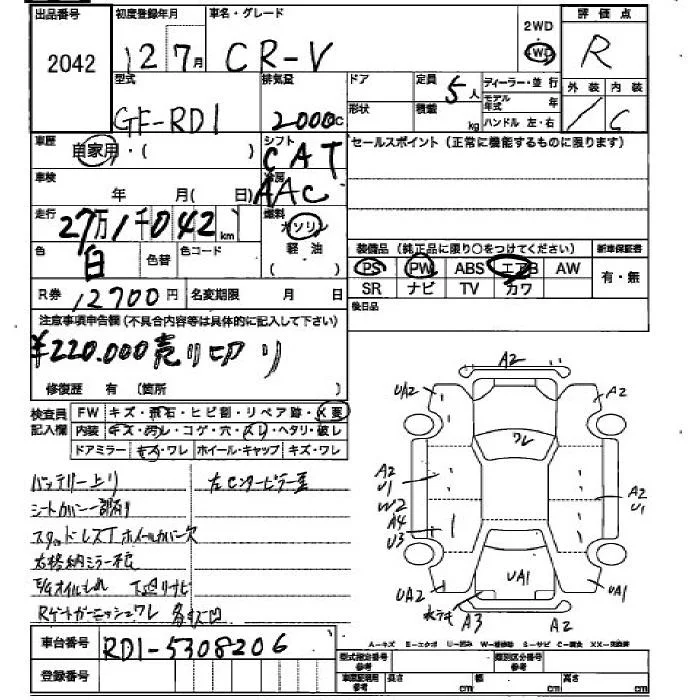 出品番号 初度登録年月 車名・グレード 2WD 評価点
2042 12 7月 CR-V 4WD R
型式 排気量 ドア 定員 5人 ディーラー・並行 外装 内装
GF-RD1 2000cc 形状 積載 kg モデル年式 年 ハンドル 左・右 1 C
車歴 自家用・( ) シフト CAT セールスポイント (正常に機能するものに限ります)
車検 年 月( 日) 冷房 AAC
走行 27万1千042km 燃料 ガソリン
色 白 色替 色コード 軽油 ( )
装備品 (純正品に限り○をつけてください) 新車保証書
PS PW ABS エアB AW 有・無
SR ナビ TV カワ
R券 12700円 名変期限 月 日
後日品
注意事項申告欄 (不具合内容等は具体的に記入して下さい)
¥220.000売り切り
修復歴 有 (箇所 )
検査員記入欄 FW キズ・飛石・ヒビ割・リペア跡・X要
内装 キズ・汚レ・コゲ・穴・スレ・ヘタリ・破レ
ドアミラー キズ・ワレ ホイール・キャップ キズ・ワレ
バッテリー上り 左センターピラー歪
シートカバー一部有り
スタッドレスT ホイールカバー欠
右格納ミラー不良
E/gオイルもれ 下廻りサビ
Rゲートガーニッシュワレ 各キズ凹
A2
UA2 A2
ワレ
A2
U1
W2
A4
U3
A2
U1
UA1
UA2 UA1
A3 A2
A…キズ E…エクボ U…凹み W…補修跡 S…サビ C…腐食 XX…交換済
車台番号 RD1-5308206
登録番号
型式指定番号 参考 類別区分番号 参考
車庫証明用 参考 長さ cm 幅 cm 高さ cm